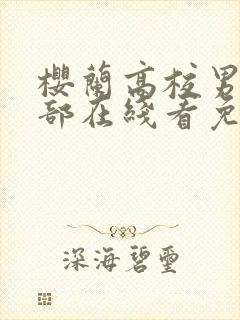 櫻蘭高校男
部在綫看免
深海碧璽